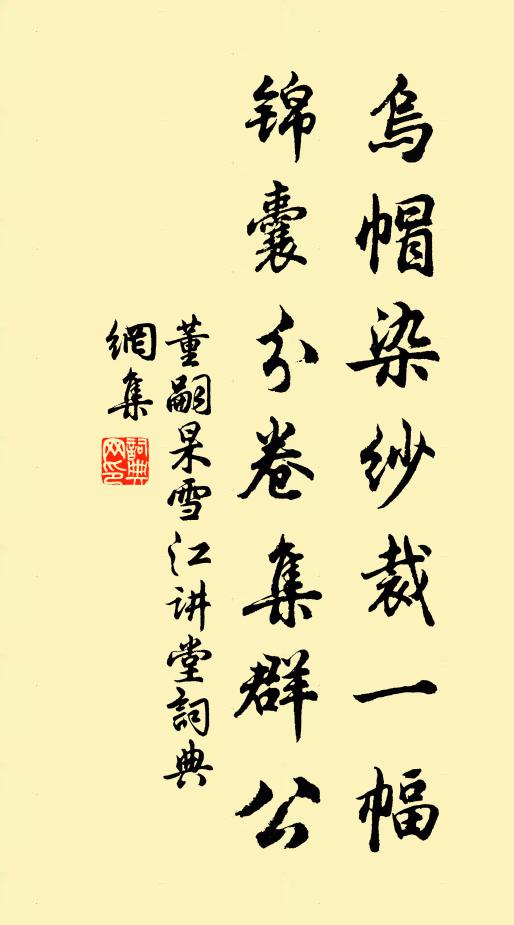 烏帽染紗裁一幅
锦囊分卷集群公
董嗣杲雪江讲堂詞典
網集
詞典网印